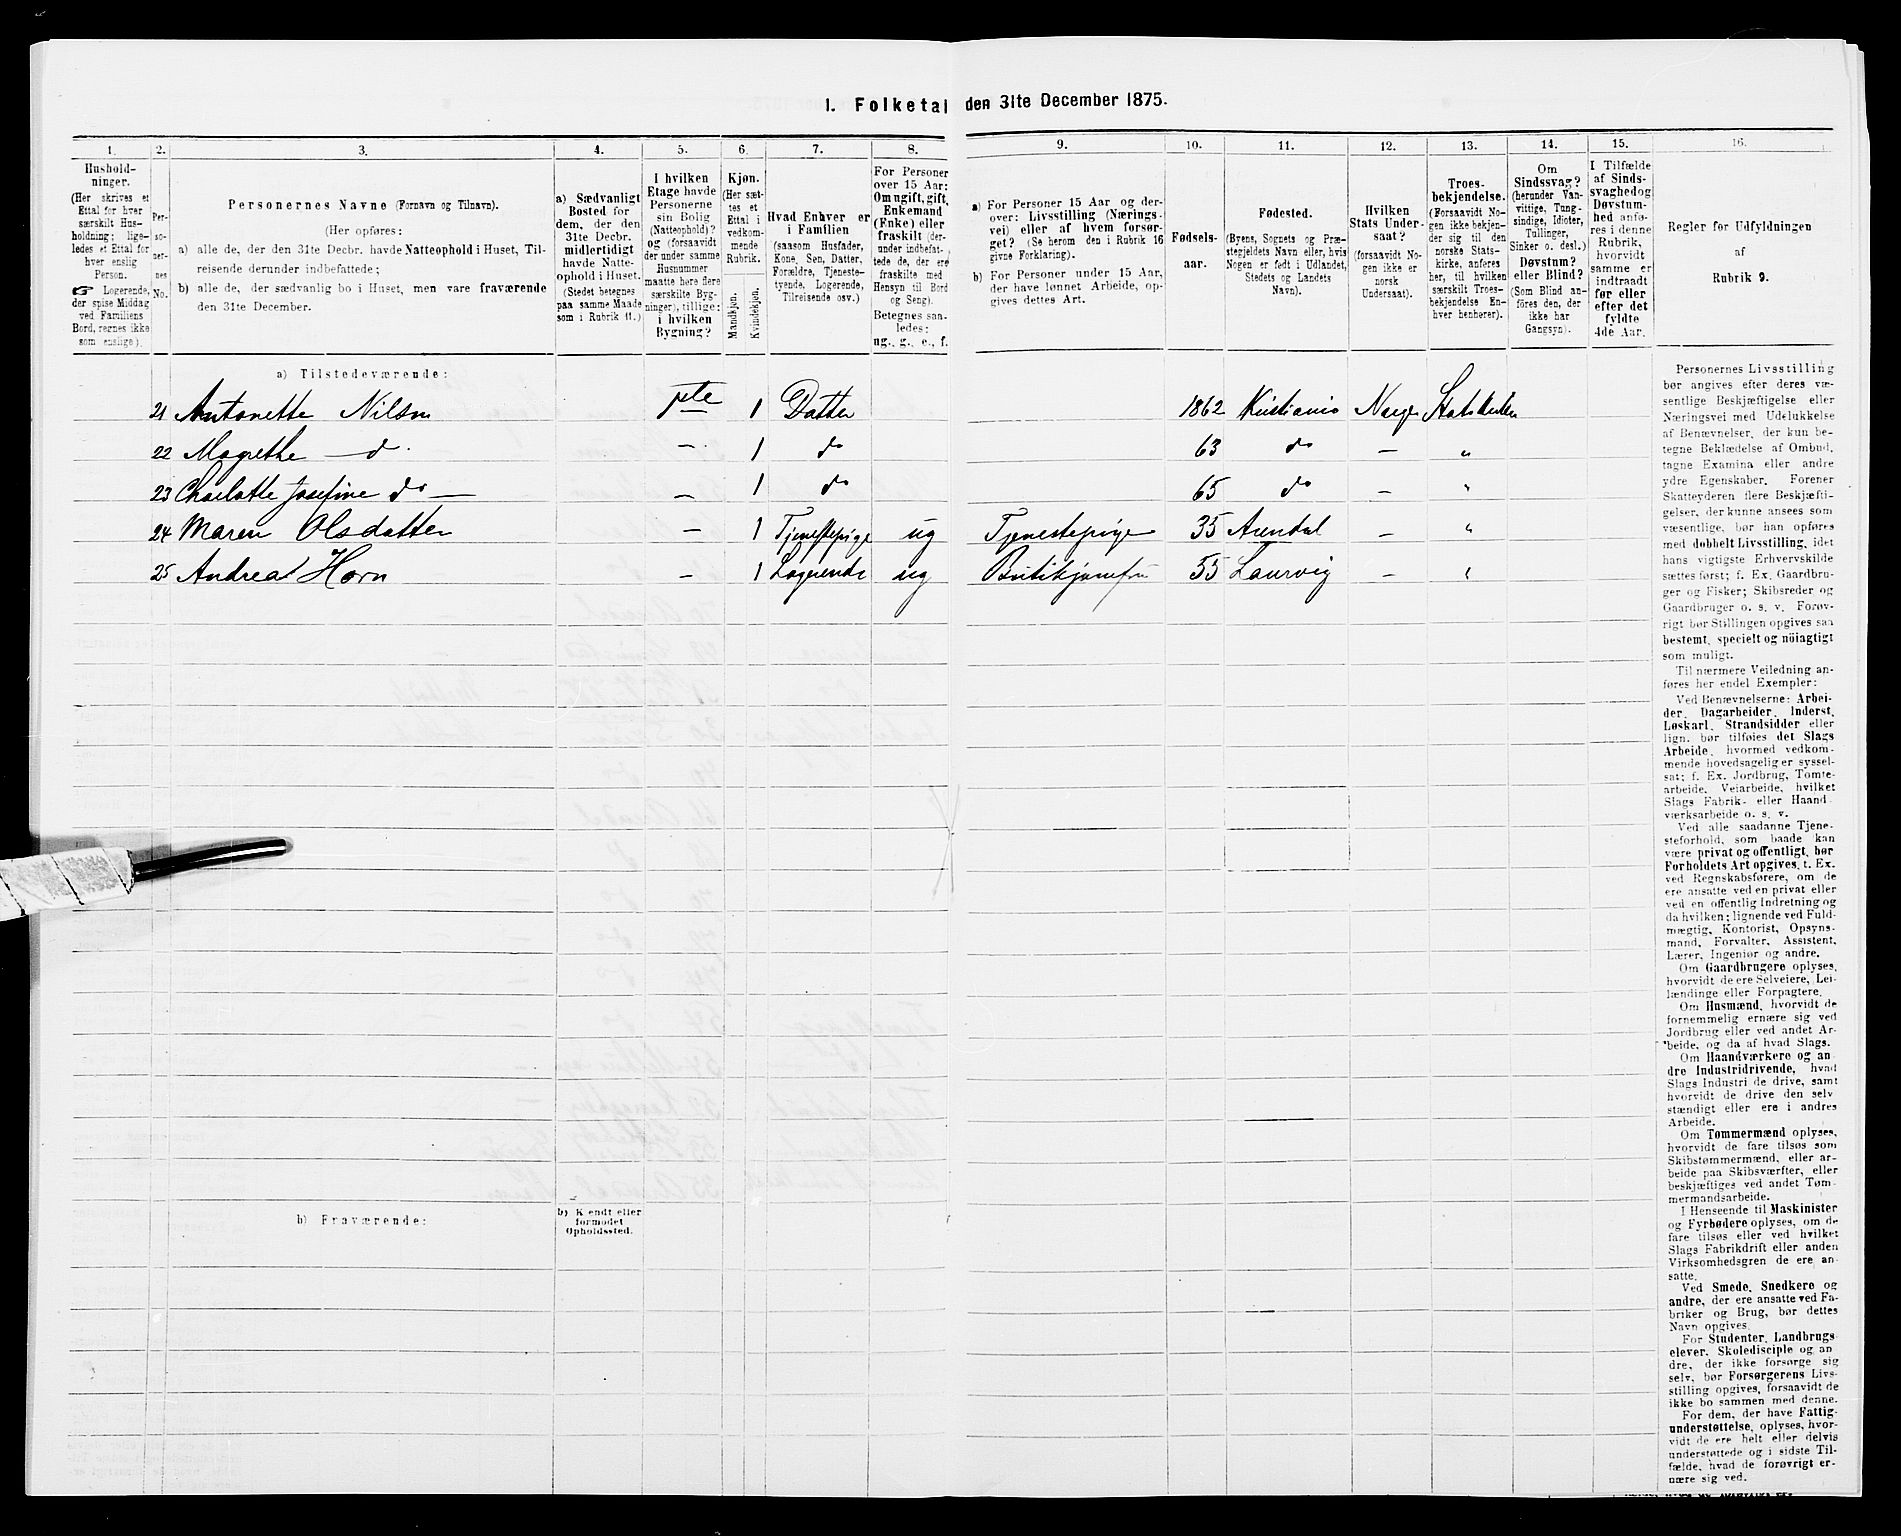 I. Folketal den 31te December 1875.
1. 2. 3. 4. 5. 6. 7. 8. 9. 10. 11. 12. 13. 14. 15. 16.
Hushold-
ninger.
(Her skrives et
Ettal for hver
særskilt Hus-
holdning; lige-
ledes et Ettal for
hver enslig
Person.
☞ Logerende,
der spise Middag
ved Familiens
Bord, regnes ikke
som enslige).
Per-
so-
ner-
nes
No.
Personernes Navne (Fornavn og Tilnavn).
(Her opføres:
a) alle de, der den 31te Decbr. havde Natteophold i Huset, Til-
reisende derunder indbefattede;
b) alle de, der sædvanlig bo i Huset, men vare fraværende
den 31te December.
a) Sædvanligt
Bosted for
dem, der den
31te Decbr.
midlertidigt
havde Natte-
ophold i Huset.
(Stedet betegnes
paa samme Maade
som i Rubrik 11.)
I hvilken
Etage havde
Personerne
sin Bolig
(Natteophold)?
og (forsaavidt
der under samme
Husnummer
maatte høre flere
særskilte Byg-
ninger), tillige:
i hvilken
Bygning?
Kjøn.
(Her sæt-
tes et
Ettal i
vedkom-
mende
Rubrik.
Mandkjøn.
Kvindekjøn.
Hvad Enhver er
i Familien
(saasom Husfader,
Kone, Søn, Datter,
Forældre, Tjeneste-
tyende, Logerende,
Tilreisende osv.)
For Personer
over 15 Aar:
Om ugift, gift,
Enkemand
(Enke) eller
fraskilt (der-
under indbefat-
tede de, der ere
fraskilte med
Hensyn til Bord
og Seng).
Betegnes saa-
ledes:
ug., g., e., f.
a) For Personer 15 Aar og der-
over: Livsstilling (Nærings-
vei) eller af hvem forsør-
get? (Se herom den i Rubrik 16
givne Forklaring).
b) For Personer under 15 Aar,
der have lønnet Arbeide, op-
gives dettes Art.
Fødsels-
aar.
Fødested.
(Byens, Sognets og Præ-
stegjeldets Navn eller, hvis
Nogen er født i Udlandet,
Stedets og Landets
Navn).
Hvilken
Stats Under-
saat?
(forsaavidt No-
gen ikke er
norsk
Undersaat).
Troes-
bekjendelse.
(Forsaavidt No-
gen ikke bekjen-
der sig til den
norske Stats-
kirke, anføres
her, til hvilken
særskilt Troes-
bekjendelse En-
hver henhører).
Om
Sindssvag?
(herunder Van-
vittige, Tung-
sindige, Idioter,
Tullinger,
Sinker o. desl.)
Døvstum?
eller Blind?
(Som Blind an-
føres den, der
ikke har
Gangsyn).
I Tilfælde
af Sinds-
svaghed og
Døvstum-
hed anfø-
res i denne
Rubrik,
hvorvidt
samme er
indtraadt
før eller
efter det
fyldte
4de Aar.
Regler for Udfyldningen
af
Rubrik 9.
a) Tilstedeværende:
21 Antonette Nilsen 1ste 1 Datter 1862 Kristiania Norge Statskirken
22 Magrethe — do — 1 do 63 do — "
23 Charlotte Josefine do — — 1 do 65 do — "
24 Maren Olsdatter — 1 Tjenestepige ug Tjenestepige 35 Arendal — "
25 Andrea Horn — 1 Logerende ug Butikjomfru 55 Laurvig — "
b) Fraværende:
b) Kjendt eller
formodet
Opholdssted.
Personernes Livsstilling
bør angives efter deres væ-
sentlige Beskjæftigelse eller
Næringsvei med Udelukkelse
af Benævnelser, der kun be-
tegne Beklædelse af Ombud,
tagne Examina eller andre
ydre Egenskaber. Forener
Skatteyderen flere Beskjæfti-
gelser, der kunne ansees som
væsentlige, bør han opføres
med dobbelt Livsstilling, idet
hans vigtigste Erhvervskilde
sættes først; f. Ex. Gaardbru-
ger og Fisker; Skibsreder og
Gaardbruger o. s. v. Forøv-
rigt bør Stillingen opgives saa
bestemt, specielt og nøiagtigt
som muligt.
Til nærmere Veiledning an-
føres her endel Exempler:
Ved Benævnelserne: Arbei-
der, Dagarbeider, Inderst,
Løskarl, Strandsidder eller
lign. bør tilføies det Slags
Arbeide, hvormed vedkom-
mende hovedsagelig er syssel-
sat; f. Ex. Jordbrug, Tomte-
arbeide, Veiarbeide, hvilket
Slags Fabrik- eller Haand-
værksarbeide o. s. v.
Ved alle saadanne Tjene-
steforhold, som baade kan
være privat og offentligt, bør
Forholdets Art opgives, t. Ex.
ved Regnskabsførere, om de
ere ansatte ved en privat eller
ved en offentlig Indretning og
da hvilken; lignende ved Fuld-
mægtig, Kontorist, Opsyns-
mand, Forvalter, Assistent,
Lærer, Ingeniør og andre.
Om Gaardbrugere oplyses,
hvorvidt de ere Selveiere, Lei-
lændinge eller Forpagtere.
Om Husmænd, hvorvidt de
fornemmelig ernære sig ved
Jordbrug eller ved andet Ar-
beide, og da af hvad Slags.
Om Haandværkere og an-
dre Industridrivende, hvad
Slags Industri de drive, samt
hvorvidt de drive den selv-
stændigt eller ere i andres
Arbeide.
Om Tømmermænd oplyses,
hvorvidt de fare tilsøs som
Skibstømmermænd, eller ar-
beide paa Skibsværfter, eller
beskjæftiges ved andet Tøm-
mermandsarbeide.
I Henseende til Maskinister
og Fyrbødere oplyses, om de
fare tilsøs eller ved hvilket
Slags Fabrikdrift eller anden
Virksomhedsgren de ere an-
satte.
Ved Smede, Snedkere og
andre, der ere ansatte ved Fa-
briker og Brug, bør dettes
Navn opgives.
For Studenter, Landbrugs-
elever, Skoledisciple og an-
dre, der ikke forsørge sig
selv, bør Forsørgerens Livs-
stilling opgives, forsaavidt de
ikke bo sammen med denne.
For dem, der have Fattig-
understøttelse, oplyses, hvor-
vidt de ere helt eller delvis
understøttede og i sidste Til-
fælde, hvad de forøvrigt er-
nære sig ved.